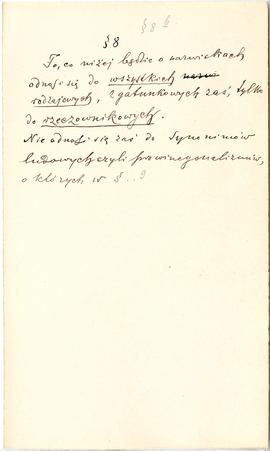 § 8 b
§ 8
To, co niżej będzie o nazwiskach
odnosi się do wszystkich
rodzajowych, z gatunkowych zaś, tylko
do rzeczownikowych.
Nie odnosi się zaś do Synonimów
ludowych czyli prowincyonalizmów,
o których w § .. 9